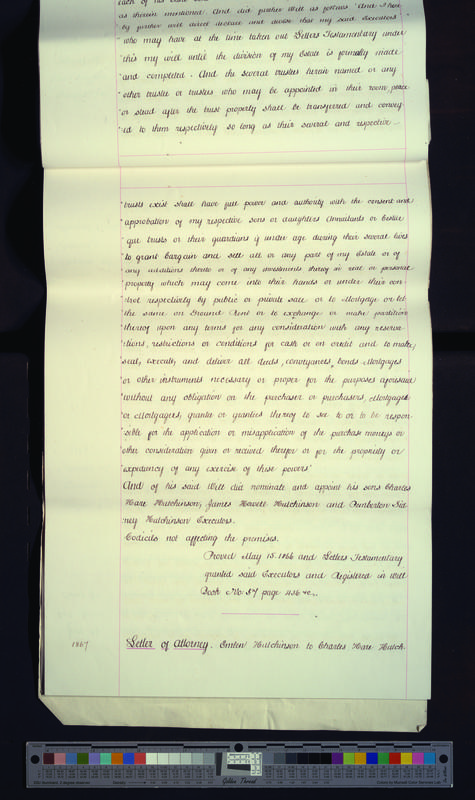 each of his said
as therein mentioned And did further Will as follows "And I here
"by further will direct declare and devise that my said Executors
"who may have at the time taken out Letters Testamentary under
"this my will until the division of my Estate is formally made
"and completed. And the several trustees herein named or any
"other trustee or trustees who may be appointed in their room place
"or stead after the trust property shall be transferred and convey
"ed to them respectively so long as their several and respective
"trusts exist shall have full power and authority with the consent and
"approbation of my respective sons or daughters Annuitants or Cestui
"que trusts or their guardians if under age during their several lives
"to grant bargain and sell all or any part of my Estate or of
"any additions thereto or of any investments thereof in real or personal
"property which may come into their hands or under their con-
"trol respectively by public or private sale or to Mortgage or let
"the same on Ground Rent or to exchange or make partition
"thereof upon any terms for any consideration with any reserva
"tions, restrictions or conditions for cash or on credit and to make,
"seal, execute, and deliver all deeds, conveyances, bonds Mortgages
"or other instruments necessary or proper for the purposes aforesaid
"without any obligation on the purchaser or purchasers, Mortgagee
"or Mortgagees, grantee or grantees thereof to see to or to be respon-
"sible for the application or misapplication of the purchase moneys or
"other consideration given or received therefor or for the propriety or
"expediency of any exercise of these powers"
And of his said Will did nominate and appoint his sons Charles
Hare Hutchinson, James Howell Hutchinson and Pemberton Sid
ney Hutchinson Executors.
Codicils not affecting the premises.
Proved May 15. 1866 and Letters Testamentary
granted said Executors and Registered in Will
Book No. 57 page 436 &c.
1867 Letter of Attorney. Emlen Hutchinson to Charles Hare Hutch-
Golden Thread